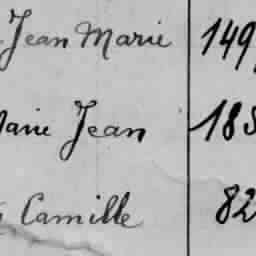 Jean Marie 149
Marie Jean 185
Camille 82